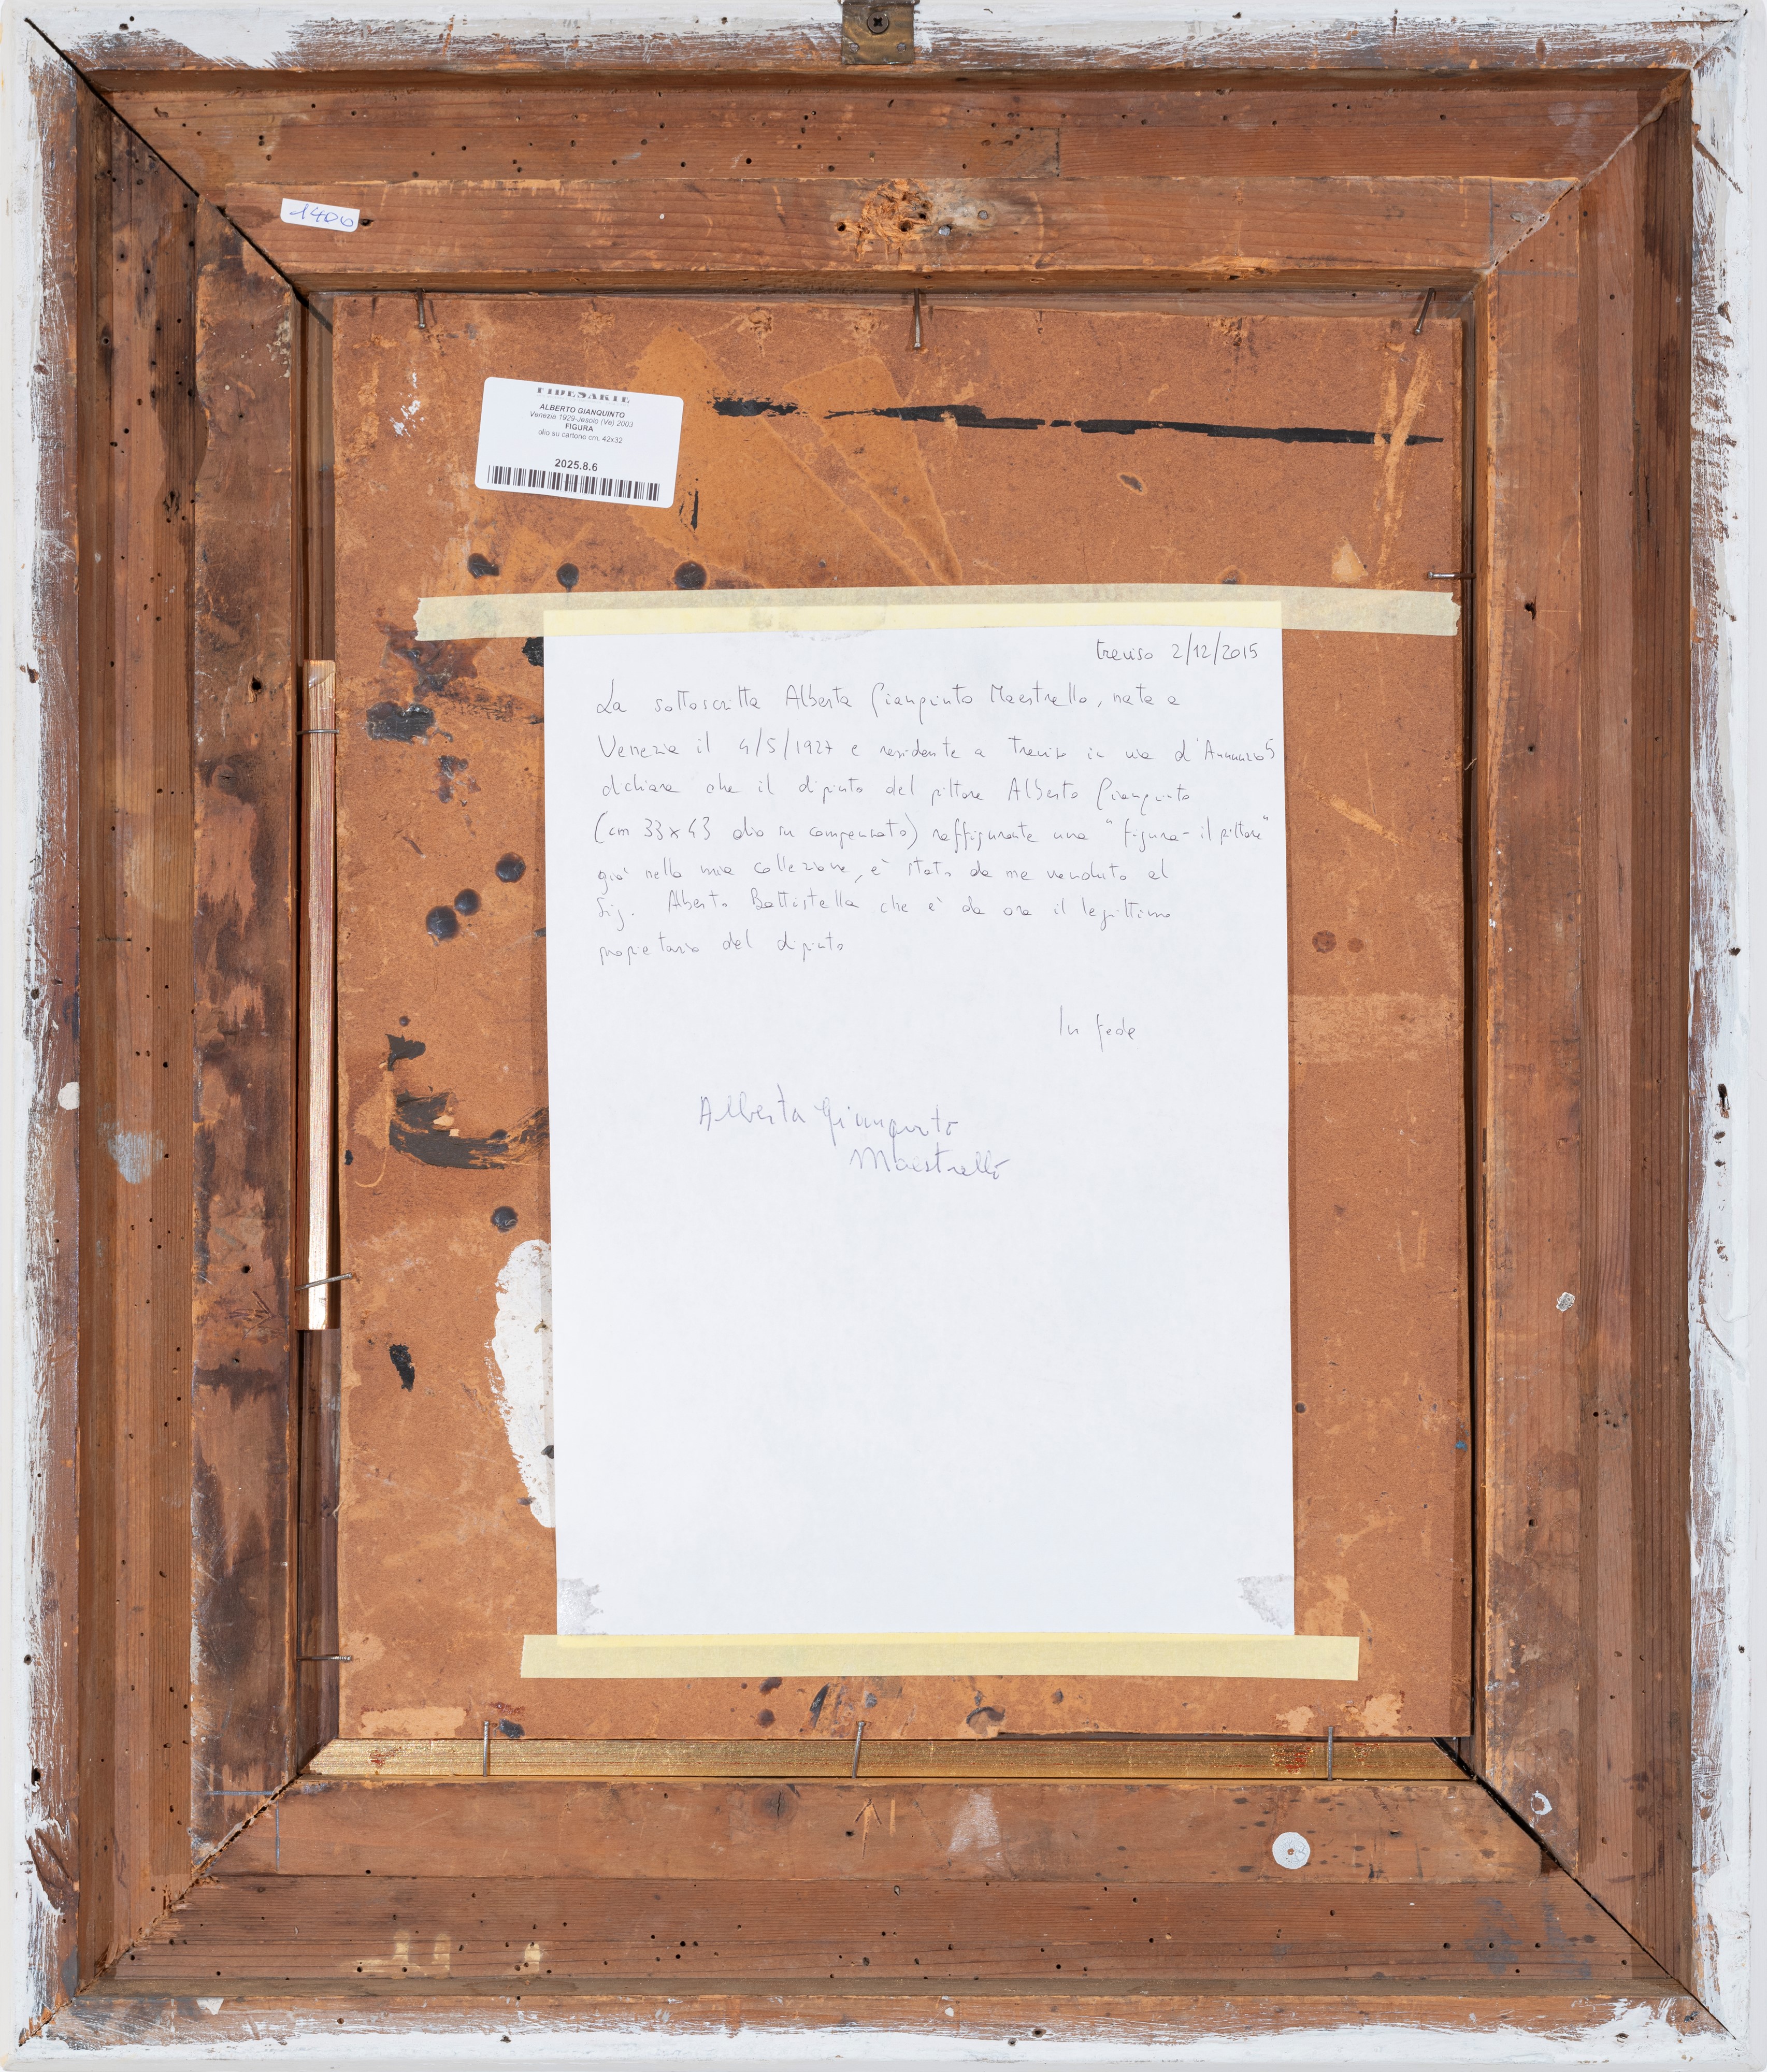 1400
FIDESARTE
ALBERTO GIANQUINTO
Venezia 1929-Jesolo (Ve) 2003
FIGURA
olio su cartone cm. 42x32
2025.8.6
treviso 2/12/2015
La sottoscritta Alberta Gianquinto Maestrello, nata a
Venezia il 4/5/1927 e residente a Treviso in via d'Annunzio 5
dichiara che il dipinto del pittore Alberto Gianquinto
(cm 33x43 olio su compensato) raffigurante una "figura- il pittore"
gia' nella mia collezione, e' stato da me venduto al
Sig. Alberto Battistella che e' da ora il legittimo
proprietario del dipinto
In fede
Alberta Gianquinto
Maestrello